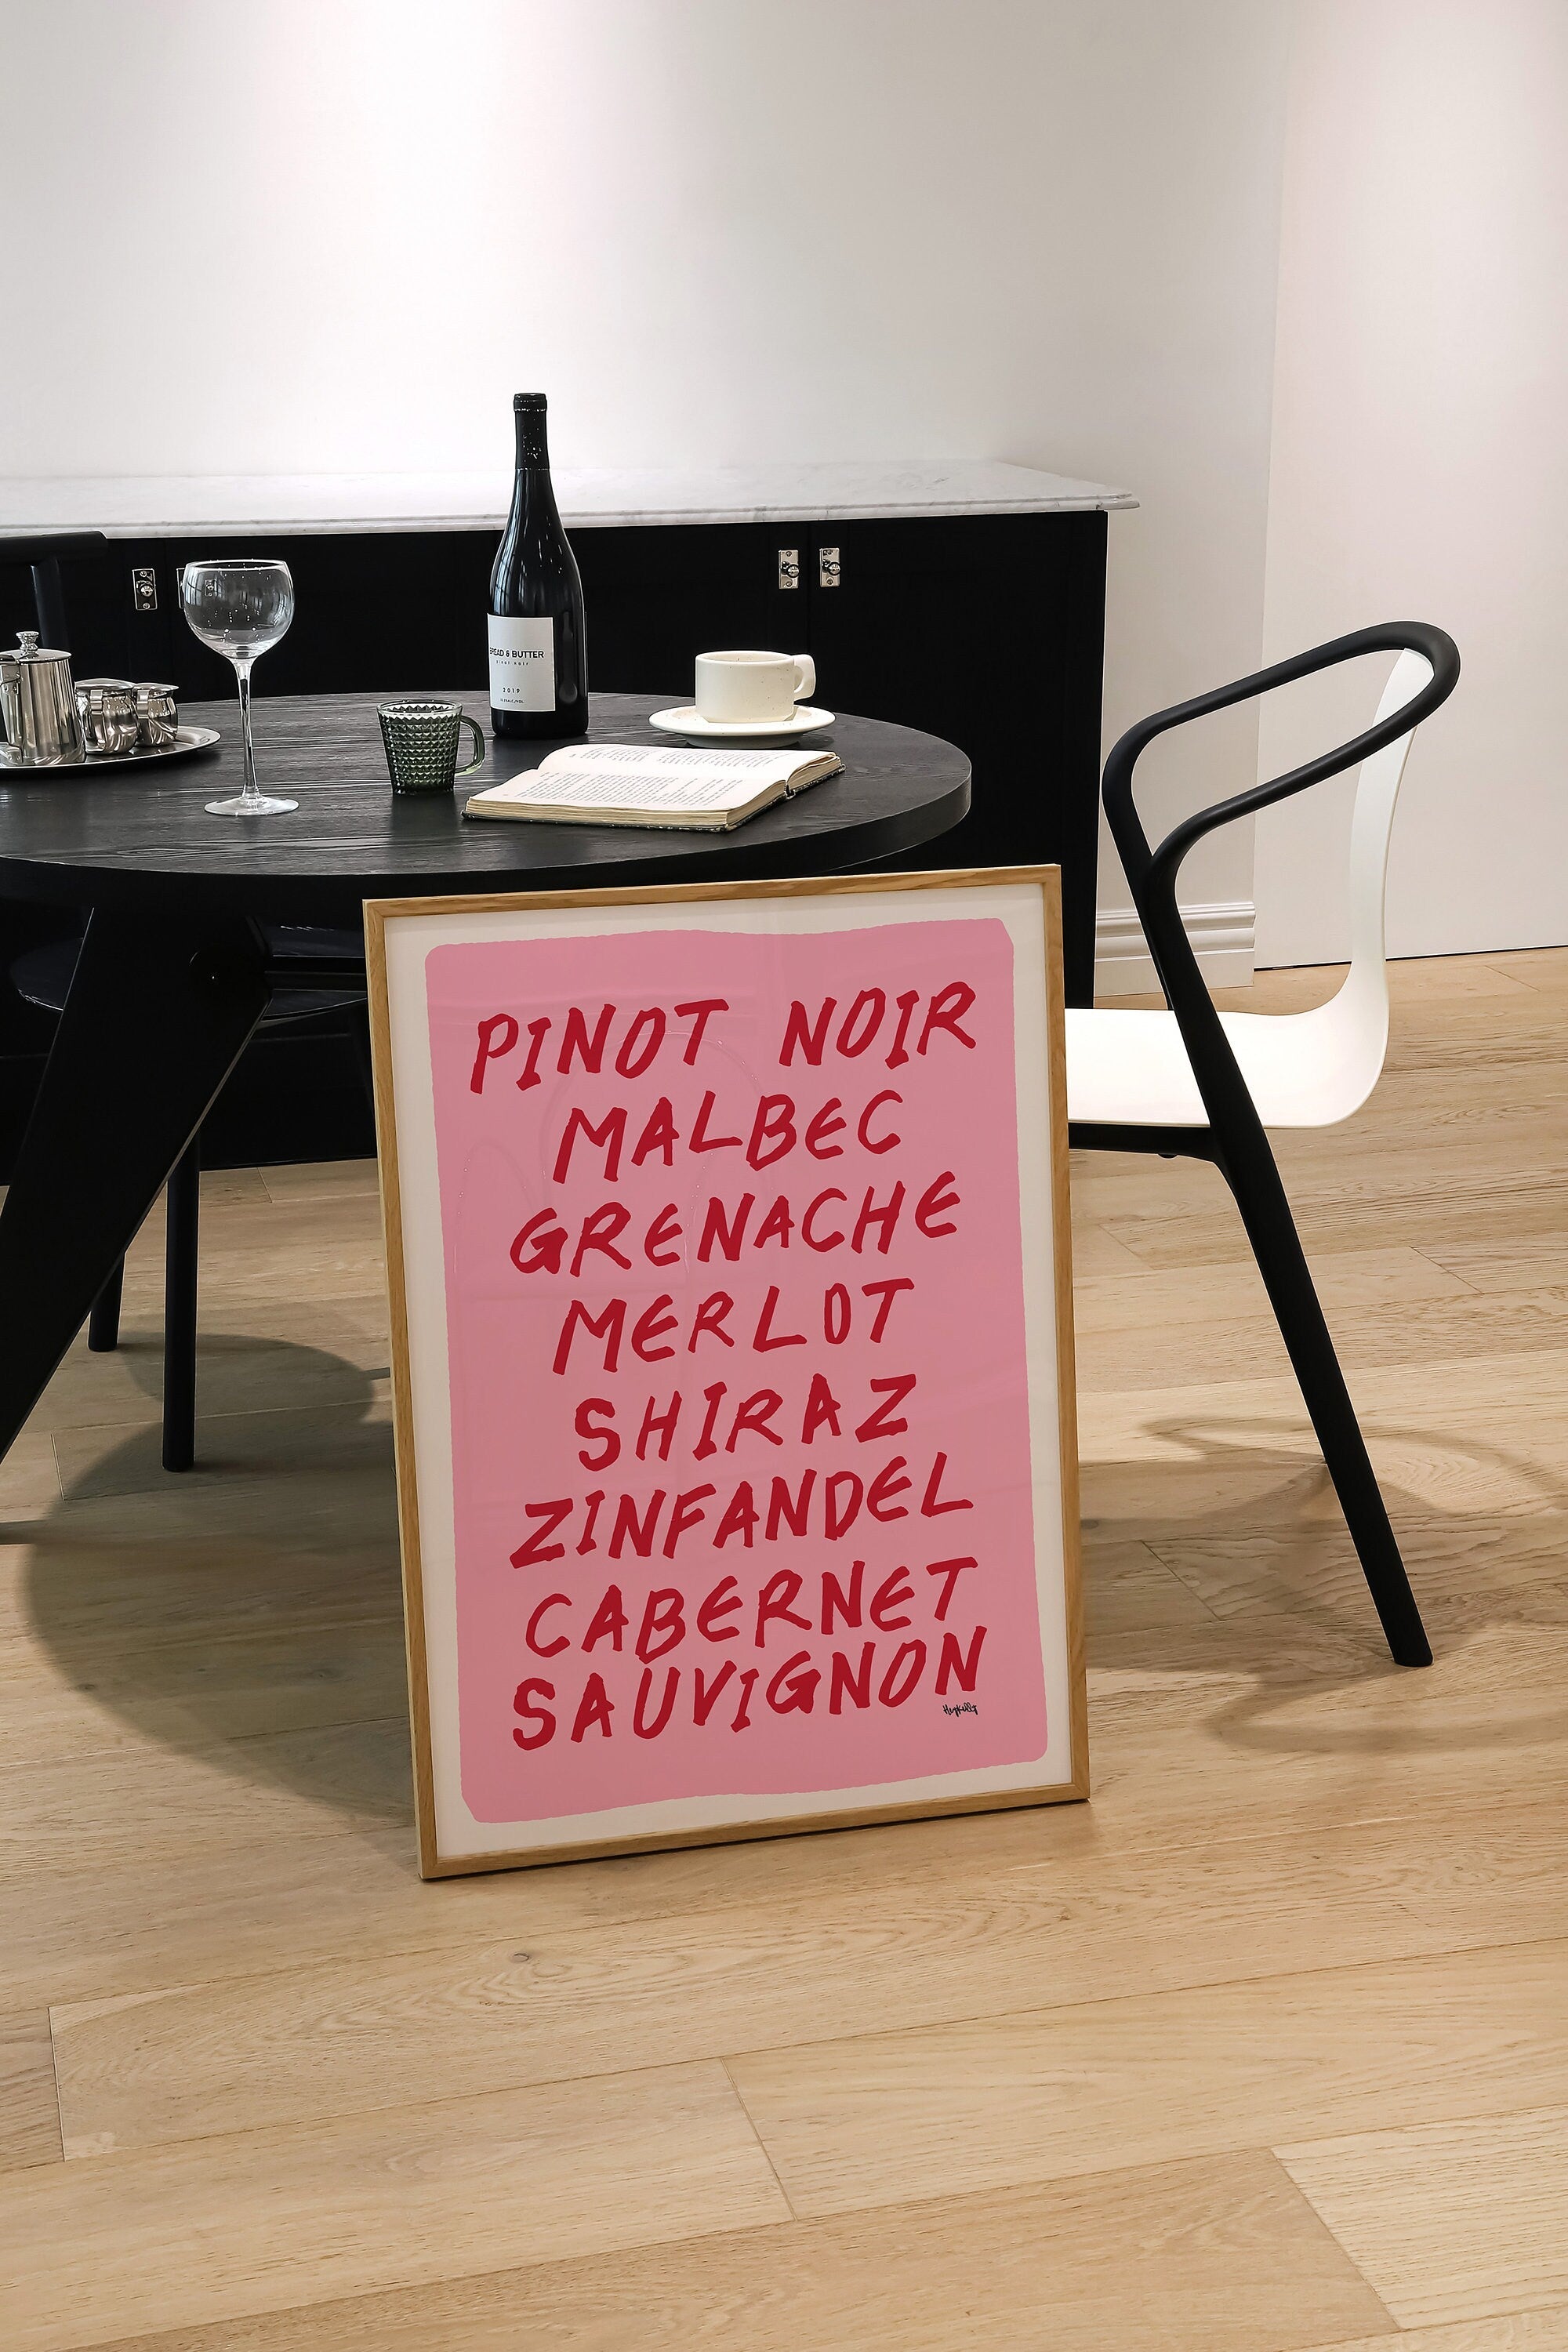 BREAD & BUTTER
pinot noir
2019
PINOT NOIR
MALBEC
GRENACHE
MERLOT
SHIRAZ
ZINFANDEL
CABERNET
SAUVIGNON
HeyKelly